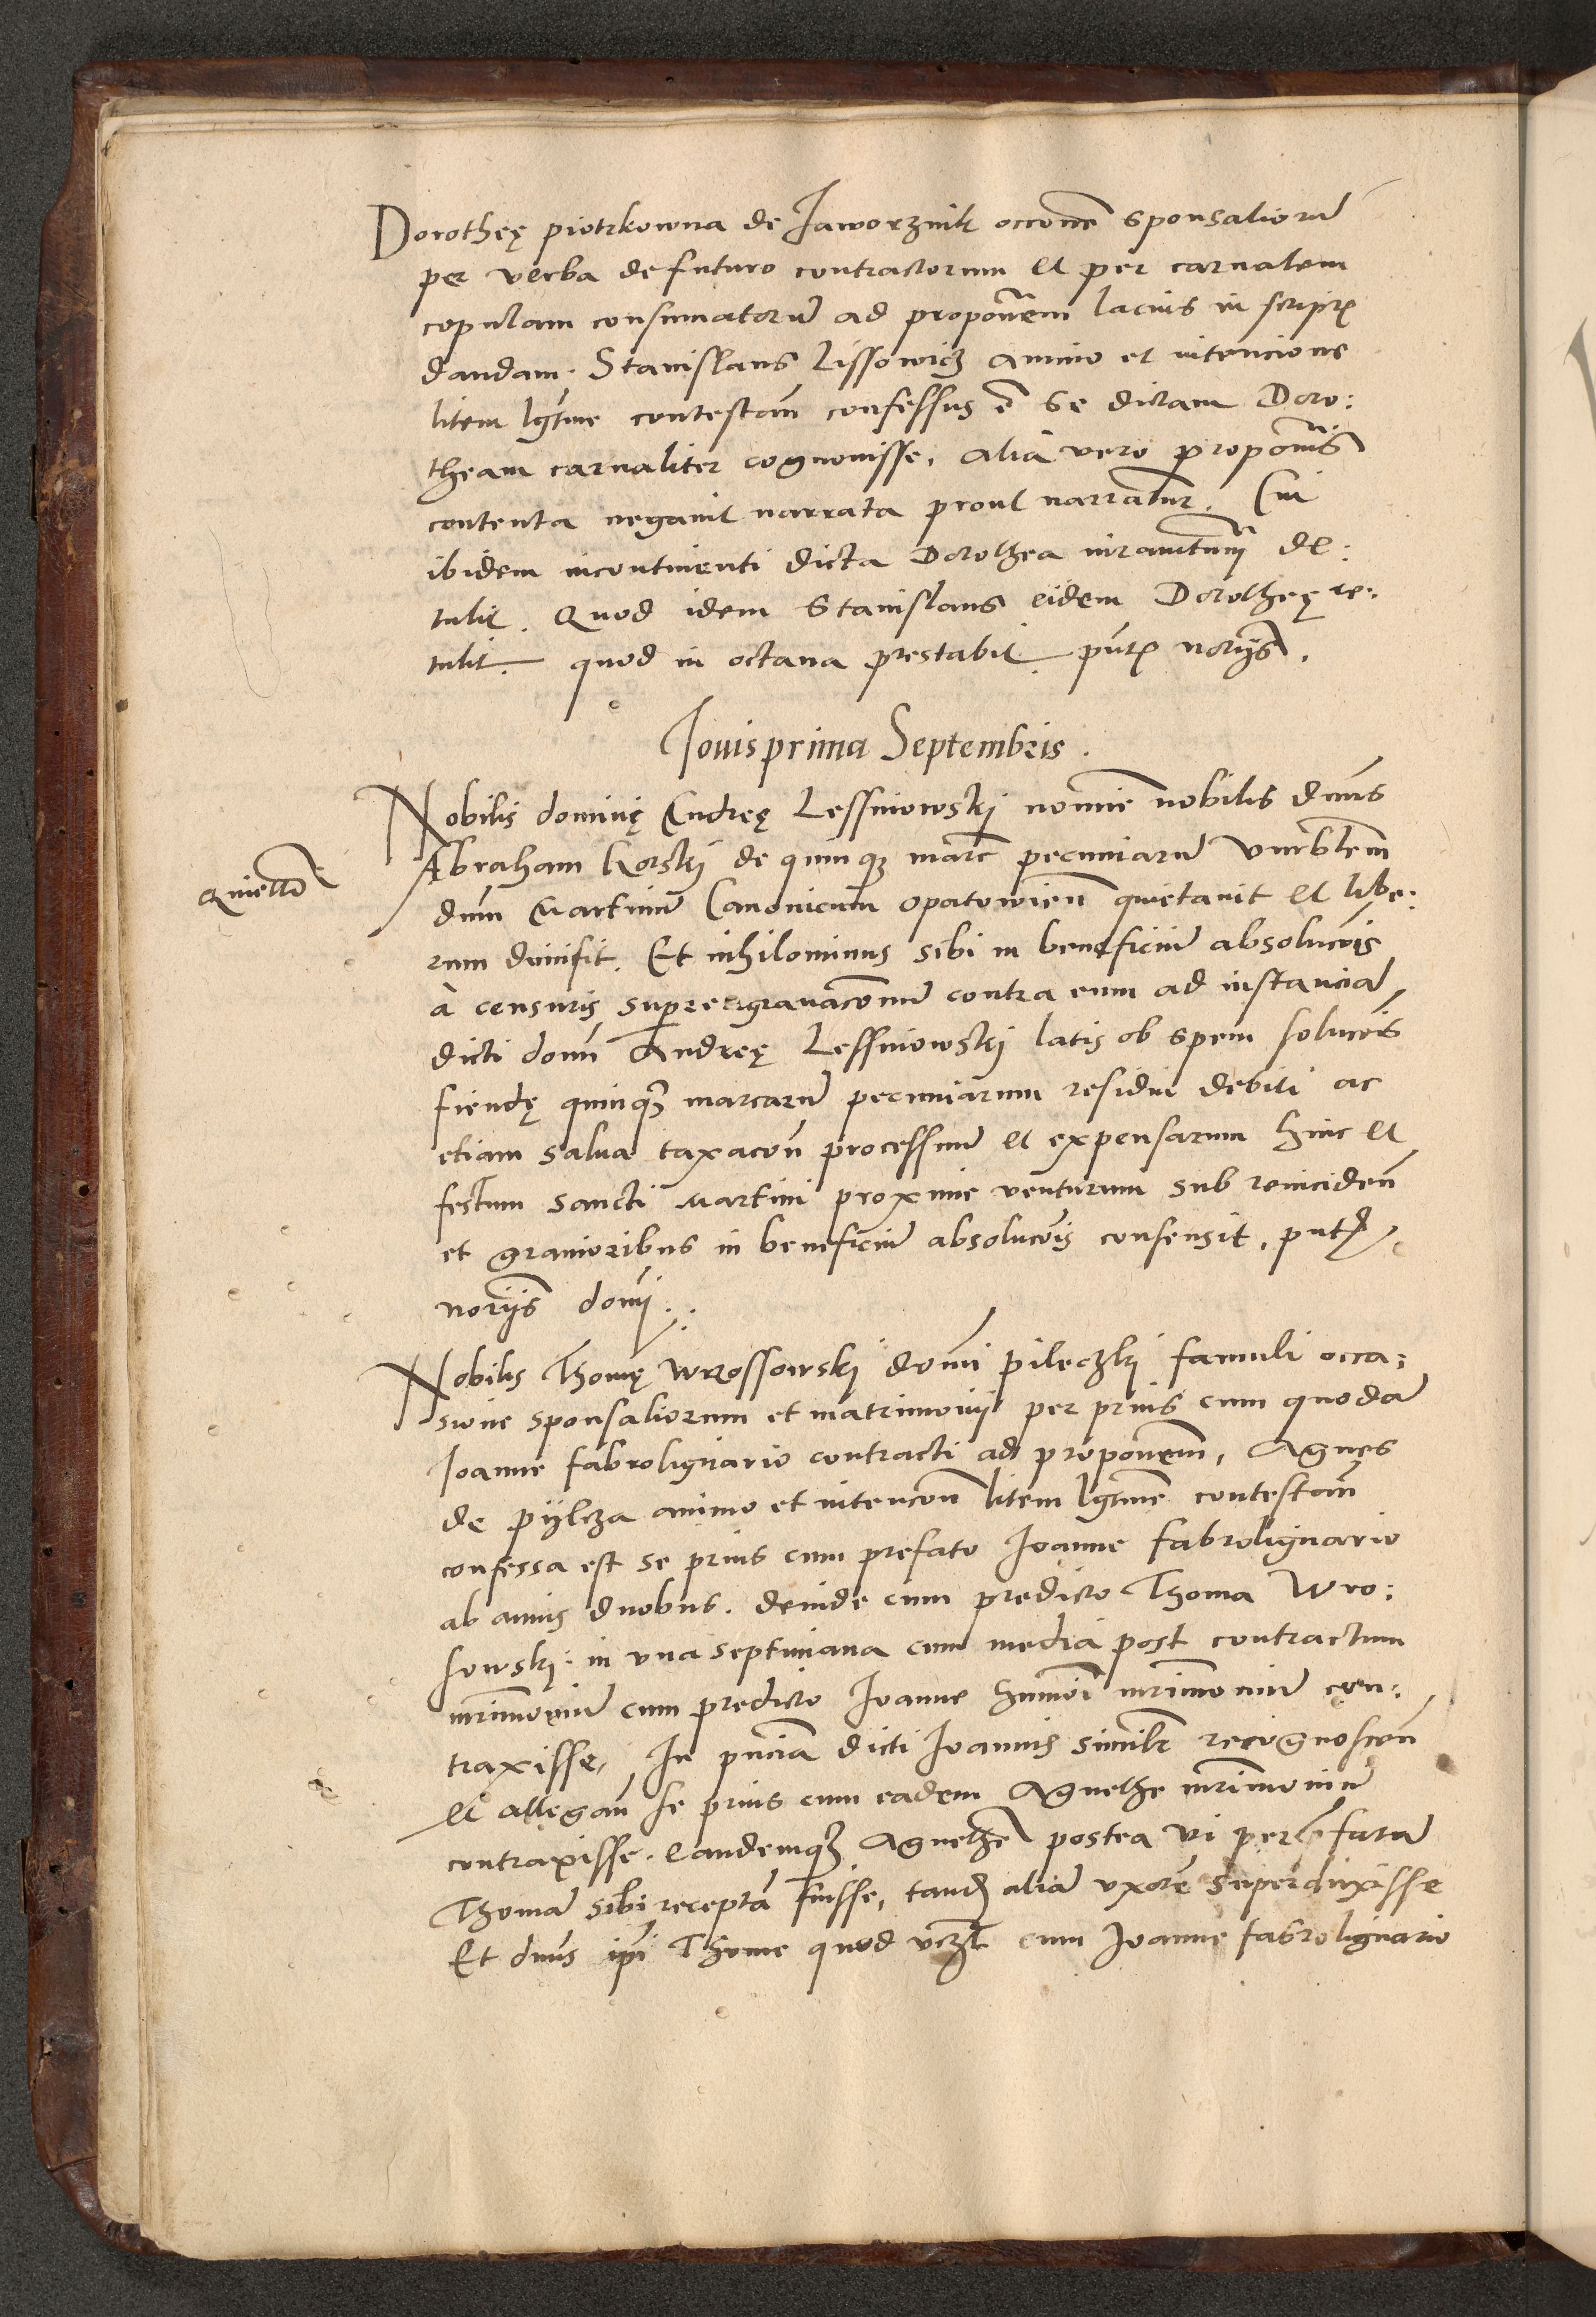 Dorotheę piotrkowna de Jaworznik occone͠ sponsalioru͠
per verba de futuro contractorum et per carnalem
copulam consumatoru͠ ad propone͠m lacius in scriptꝭ
dandam. Stanislaus Lissowicz animo et intencione
litem lg͠tme contesta͠n confessus e͠ se dictam Doro:
theam carnaliter cognouisse, alia vero propon͠is
contenta negauit narrata prout narrantur. Cui
ibidem incontinenti dicta Dorothea iuramentu͠m de:
tulit. Quod idem Stanislaus eidem Dorotheę re:
tulit. quod in octaua prestabit. pn͠tꝭ notrijs.
Jouis prima Septembris.
Nobilis dominę Andreę Lessniowskj nomine nobilis dn͠us
Quiettac͠
Abraham Korskj de quinqꝫ marc͠ pecuniaru͠ vn͠rblem
dn͠m Martinu͠ Canonicum opatowien͠ quietauit et libe:
rum dimisit. Et nihilominus sibi in beneficiu͠ absoluc͠ois
a censuris supreaggrauac͠onum contra eum ad instancia͠
dicti domi͠ Andreę Lessniowskj latis ob spem soluc͠ois
fiendę quinqꝫ marcaru͠ pecuniarum residui debiti ac
etiam salua taxaco͠n processuu͠ et expensarum hinc et
festum sancti Martini proxime venturum sub reinciden͠
et grauioribus in beneficiu͠ absoluc͠ois consensit, pn͠tꝭ
notrijs domi͠.
Nobilis Thomę Wrossowskj domi͠ pileczkj famuli occa:
sione sponsaliorum et matrimonij per prius cum quoda͠
Joanne fabrolignario contracti ad propone͠m, Agnes
de pylcza animo et intenco͠n litem lg͠tme contesta͠n
confessa est se prius cum prefato Joanne fabrolignario
ab annis duobus. deinde cum predicto Thoma Wro:
sowskj: in vna septimana cum media post contractum
mr͠imoniu͠ cum predicto Joanne hm͠moi mr͠imoniu͠ con:
traxisse, In pn͠cia dicti Joannis simil͠r recognoscen͠
et allegan͠ se prius cum eadem Agnethe mr͠imoniu͠
contraxisse. eandemqꝫ Agnethe͠ postea vi per prefatu͠
Thoma͠ sibi recepta͠ fuisse, tand͠ alia͠ vxore͠ superduxisse
Et dn͠us ip͠i Thome quod vczt cum Joanne fabrolignario